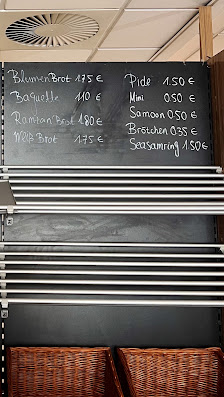 BlumenBrot 1.75 €
Baguette 1.10 €
Ramtan Brot 1.80 €
Weiß Brot 1.75 €
Pide 1.50 €
Mini 0.50 €
Samoon 0.50 €
Brötchen 0.35 €
Seasamring 1.50 €